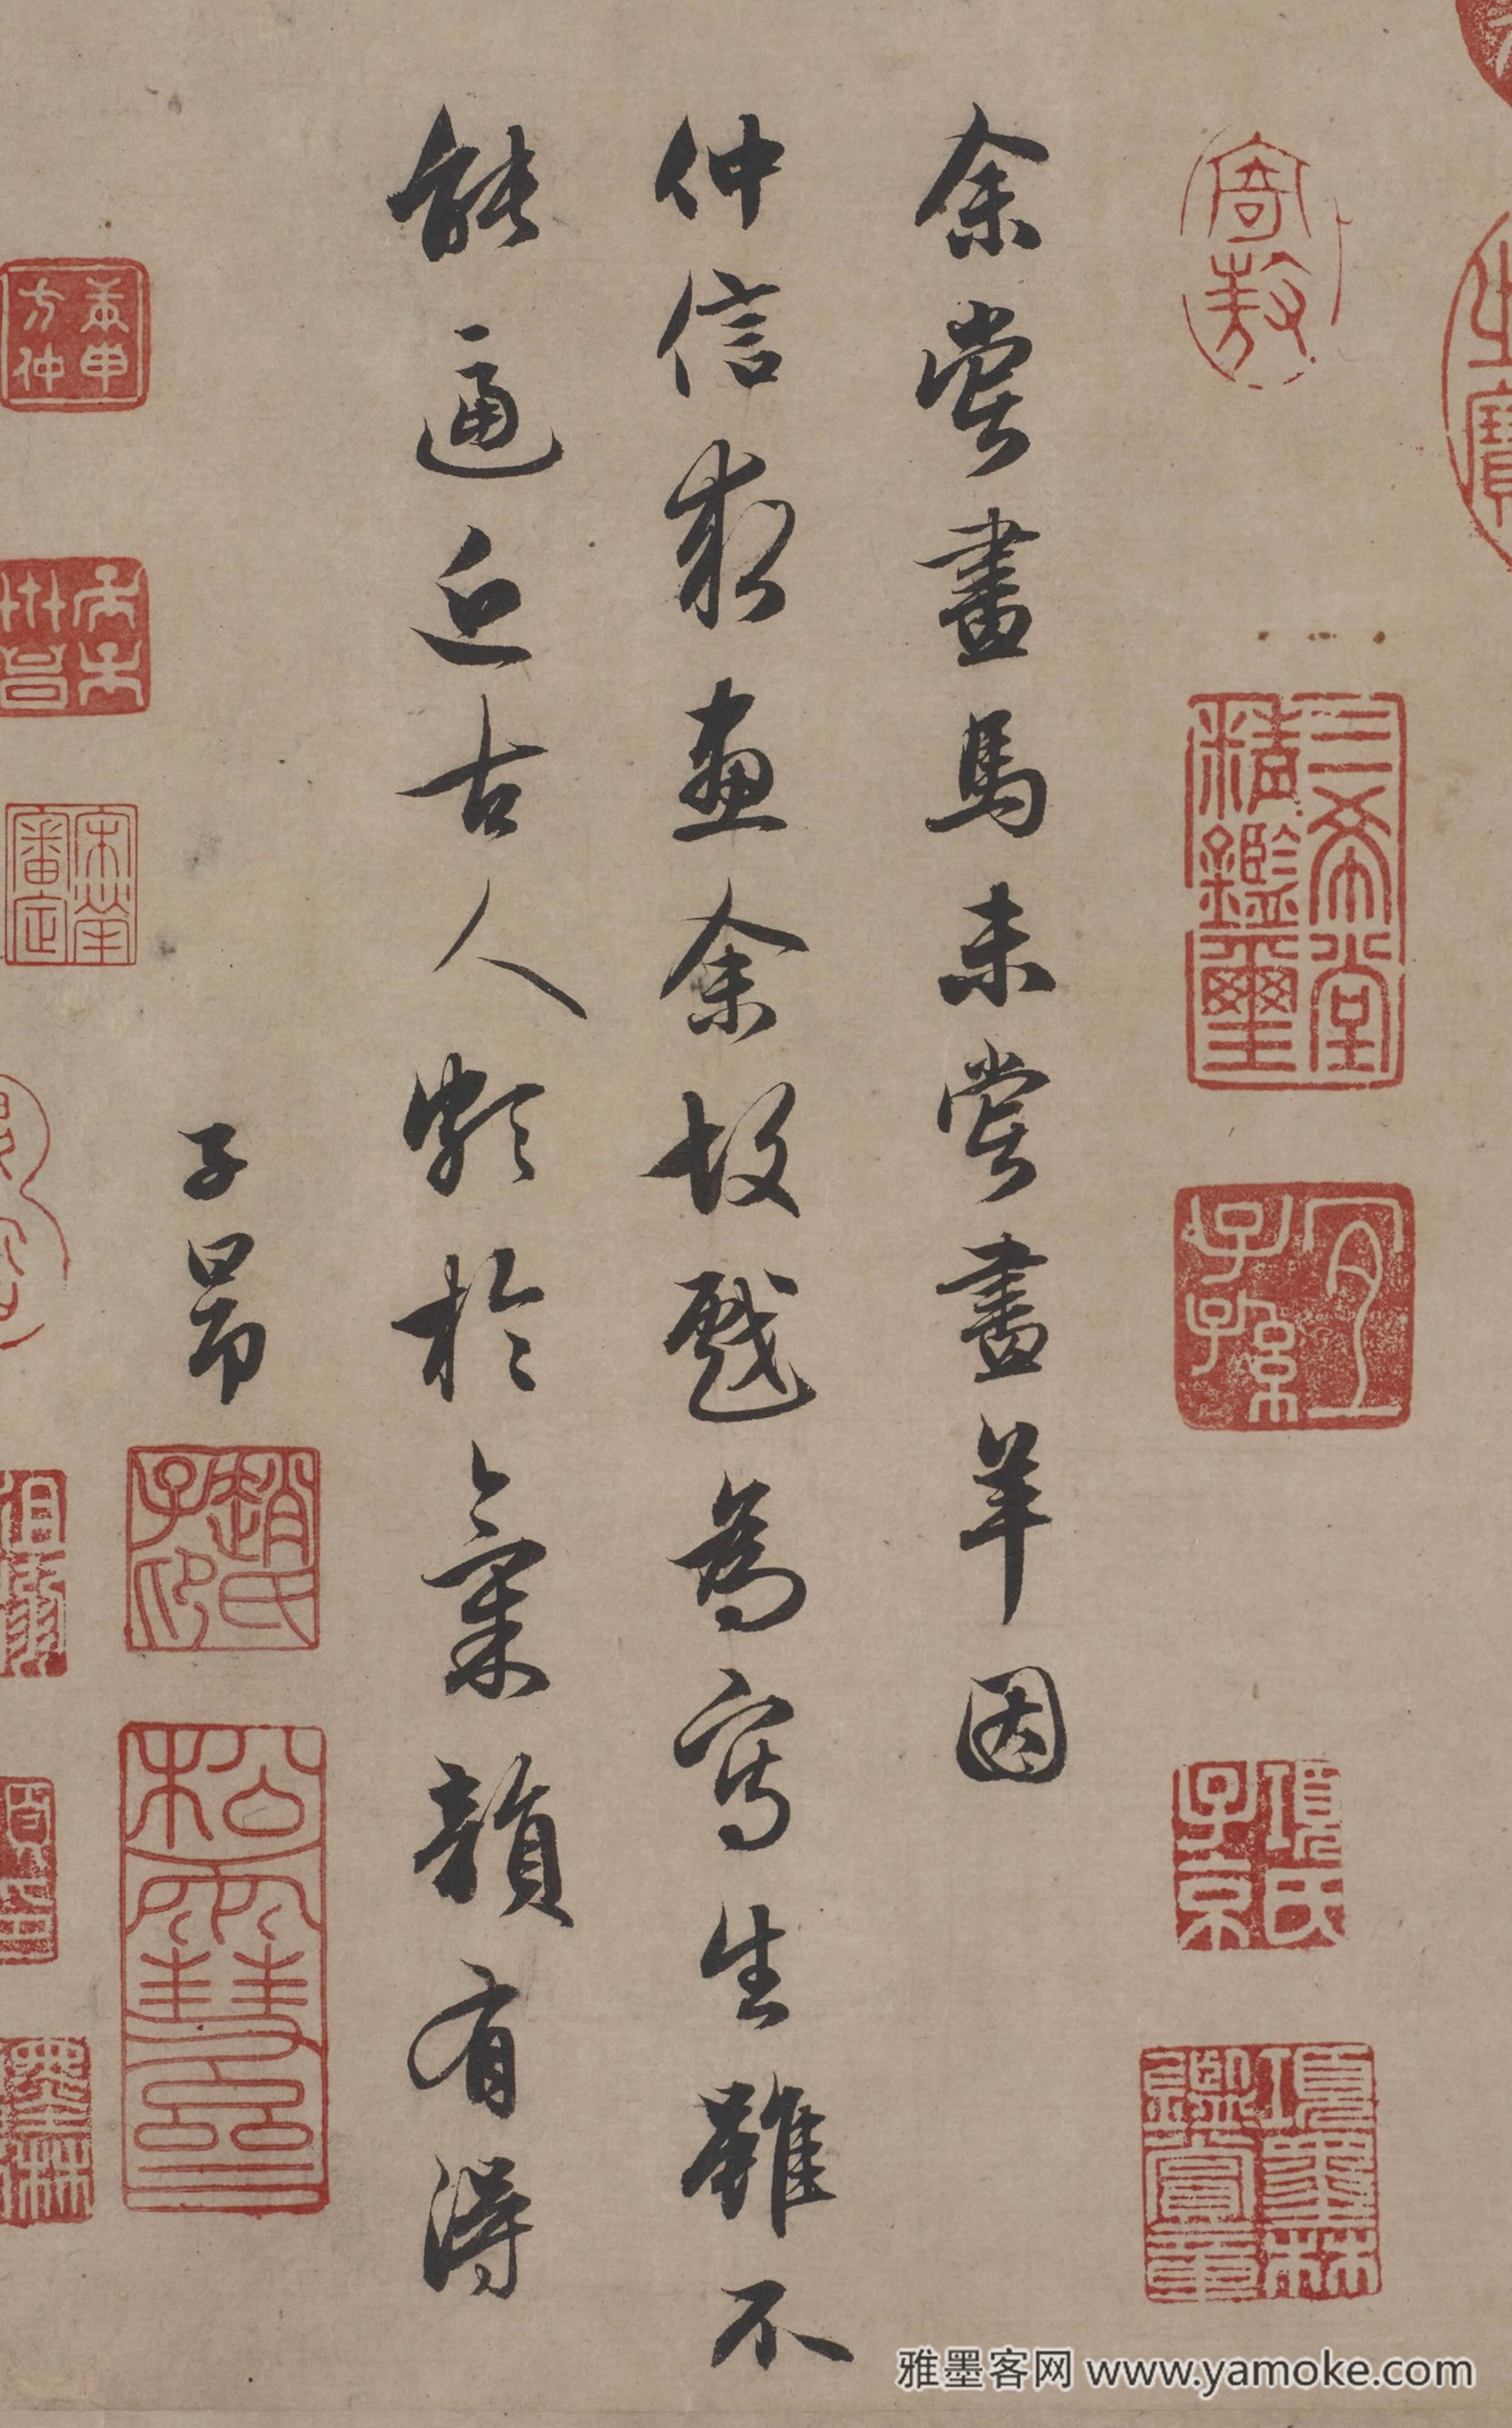 余嘗畫馬未嘗畫羊因
仲信求畫余故戲為寫生雖不
能逼近古人頗於氣韻有得
子昂
寄敖
三希堂
精鑑璽
宜
子孫
項氏
子京
項墨林
鑑賞章
趙氏
子印
松雪齋
宋犖
審定
雅墨客网 www.yamoke.com